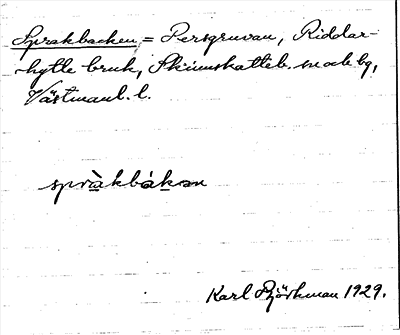 Sprakbacken = Persgruvan, Riddar-
hytte bruk, Skinnskatteb. sn och bg,
Västmanl. l.
språkbákan
Karl Björkman 1929.